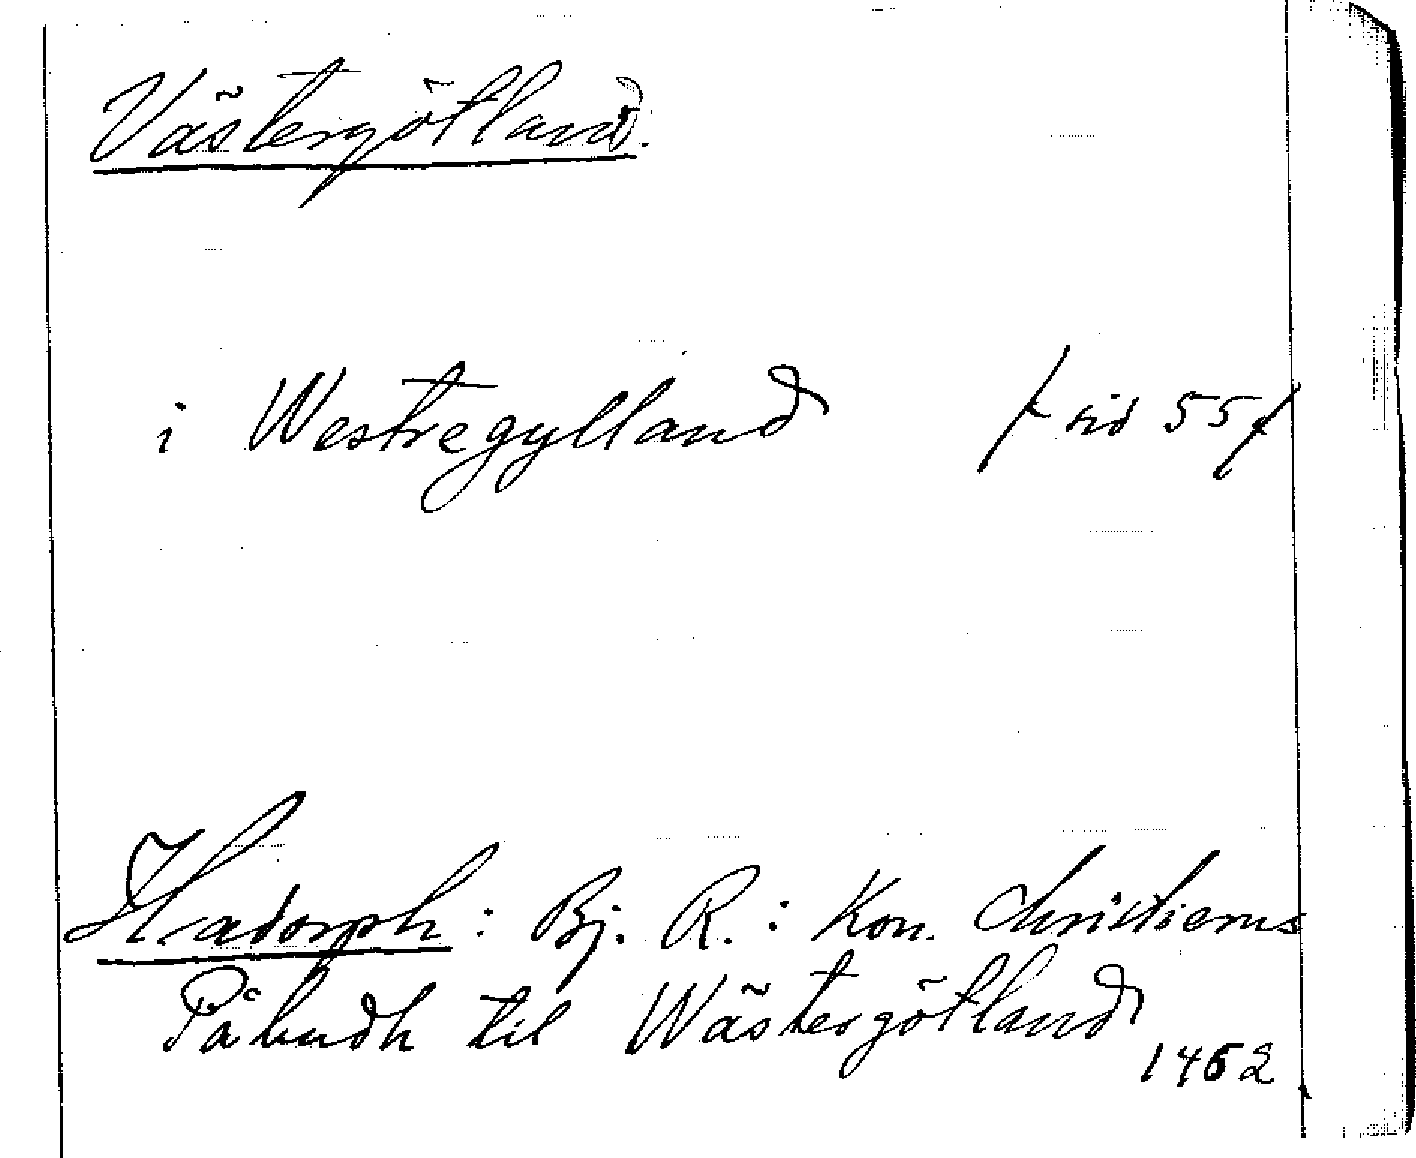 Västergötland.
i Westregylland /: sid 55 :/
Hadorph: Bj. R.: Kon. Christierns
Påbudh til Wästergötland
1462